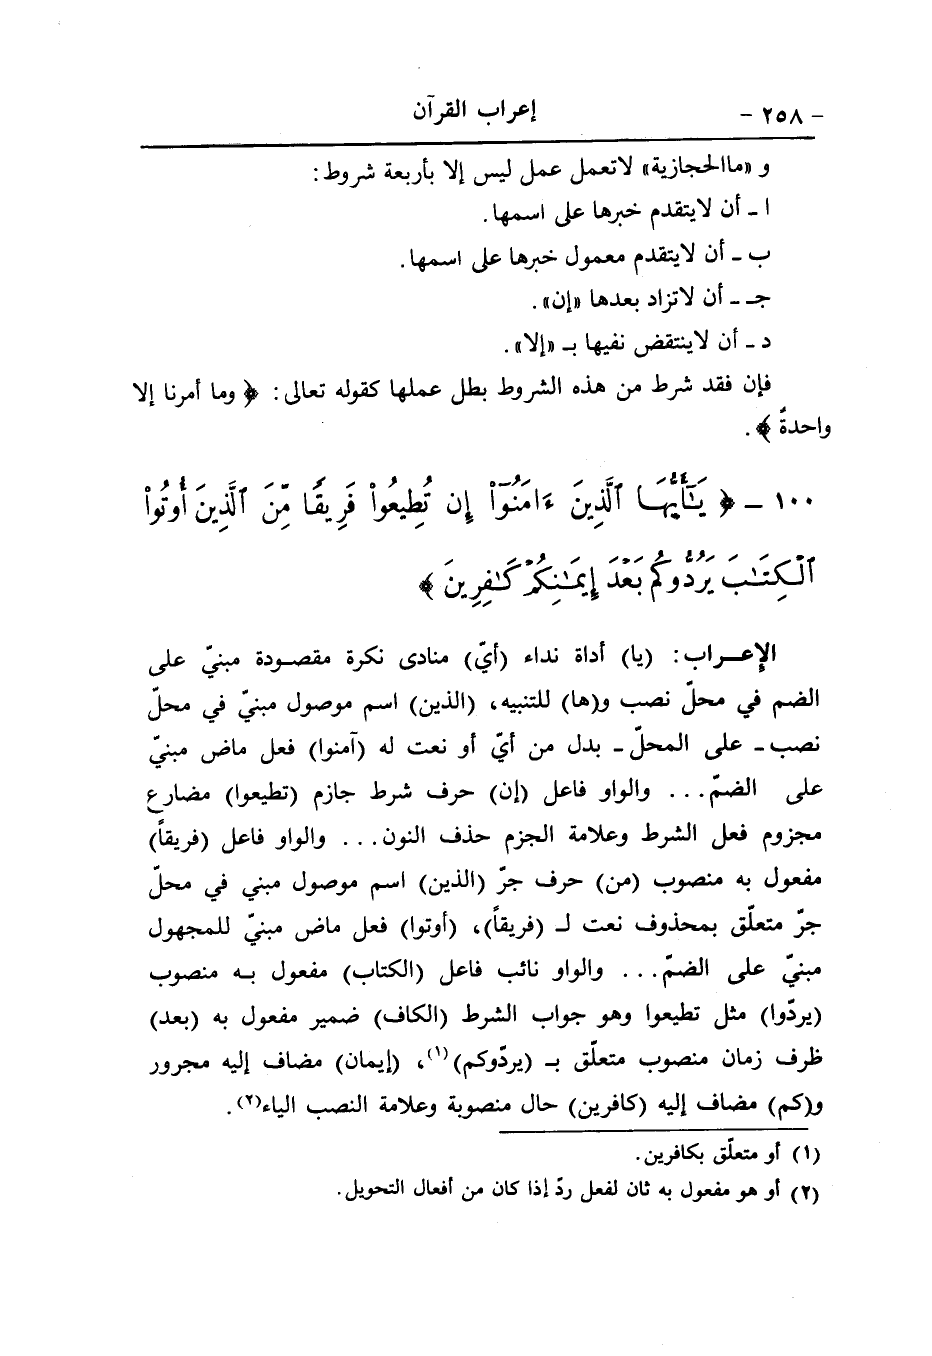 - ٢٥٨ - إعراب القرآن
و «ماالحجازية» لاتعمل عمل ليس إلا بأربعة شروط:
ا ـ أن لايتقدم خبرها على اسمها.
ب ـ أن لايتقدم معمول خبرها على اسمها.
جـ ـ أن لاتزاد بعدها «إن».
د ـ أن لاينتقض نفيها بـ «إلا».
فإن فقد شرط من هذه الشروط بطل عملها كقوله تعالى: ﴿ وما أمرنا إلا
واحدةٌ ﴾.
١٠٠ ـ ﴿ يَـٰٓأَيُّهَا ٱلَّذِينَ ءَامَنُوٓا۟ إِن تُطِيعُوا۟ فَرِيقًا مِّنَ ٱلَّذِينَ أُوتُوا۟
ٱلْكِتَـٰبَ يَرُدُّوكُم بَعْدَ إِيمَـٰنِكُمْ كَـٰفِرِينَ ﴾
الإعـراب: (يا) أداة نداء (أيّ) منادى نكرة مقصودة مبنيّ على
الضم في محلّ نصب و(ها) للتنبيه، (الذين) اسم موصول مبنيّ في محلّ
نصب ـ على المحلّ ـ بدل من أيّ أو نعت له (آمنوا) فعل ماض مبنيّ
على الضمّ... والواو فاعل (إن) حرف شرط جازم (تطيعوا) مضارع
مجزوم فعل الشرط وعلامة الجزم حذف النون... والواو فاعل (فريقاً)
مفعول به منصوب (من) حرف جرّ (الذين) اسم موصول مبني في محلّ
جرّ متعلّق بمحذوف نعت لـ (فريقاً)، (أوتوا) فعل ماض مبنيّ للمجهول
مبنيّ على الضمّ... والواو نائب فاعل (الكتاب) مفعول بـه منصوب
(يردّوا) مثل تطيعوا وهو جواب الشرط (الكاف) ضمير مفعول به (بعد)
ظرف زمان منصوب متعلّق بـ (يردّوكم)(١)، (إيمان) مضاف إليه مجرور
و(كم) مضاف إليه (كافرين) حال منصوبة وعلامة النصب الياء(٢).
(١) أو متعلّق بكافرين.
(٢) أو هو مفعول به ثان لفعل ردّ إذا كان من أفعال التحويل.